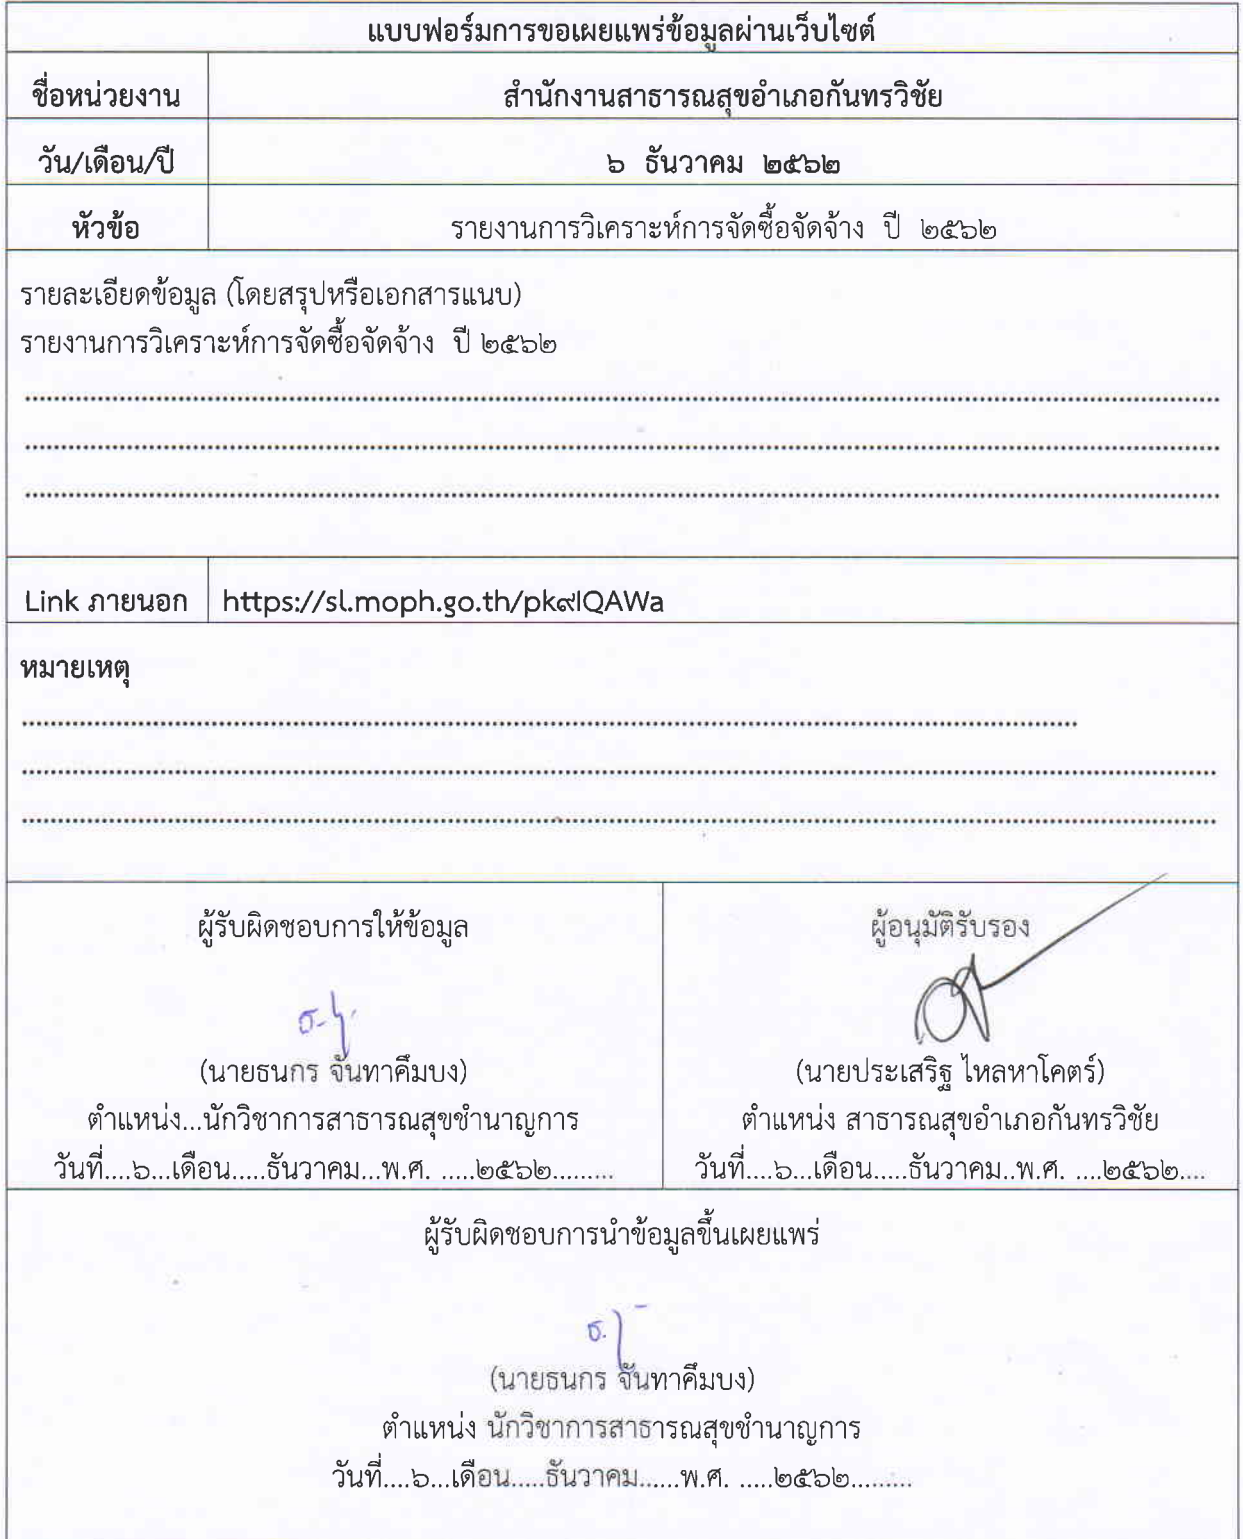 แบบฟอร์มการขอเผยแพร่ข้อมูลผ่านเว็บไซต์
ชื่อหน่วยงาน สำนักงานสาธารณสุขอำเภอกันทรวิชัย
วัน/เดือน/ปี ๖ ธันวาคม ๒๕๖๒
หัวข้อ รายงานการวิเคราะห์การจัดซื้อจัดจ้าง ปี ๒๕๖๒
รายละเอียดข้อมูล (โดยสรุปหรือเอกสารแนบ)
รายงานการวิเคราะห์การจัดซื้อจัดจ้าง ปี ๒๕๖๒
Link ภายนอก https://sl.moph.go.th/pk๙IQAWa
หมายเหตุ
ผู้รับผิดชอบการให้ข้อมูล
(นายธนกร จันทาคึมบง)
ตำแหน่ง...นักวิชาการสาธารณสุขชำนาญการ
วันที่....๖...เดือน.....ธันวาคม...พ.ศ. .....๒๕๖๒.........
ผู้อนุมัติรับรอง
(นายประเสริฐ ไหลหาโคตร์)
ตำแหน่ง สาธารณสุขอำเภอกันทรวิชัย
วันที่....๖...เดือน.....ธันวาคม..พ.ศ. ....๒๕๖๒....
ผู้รับผิดชอบการนำข้อมูลขึ้นเผยแพร่
(นายธนกร จันทาคึมบง)
ตำแหน่ง นักวิชาการสาธารณสุขชำนาญการ
วันที่....๖...เดือน.....ธันวาคม......พ.ศ. .....๒๕๖๒.........